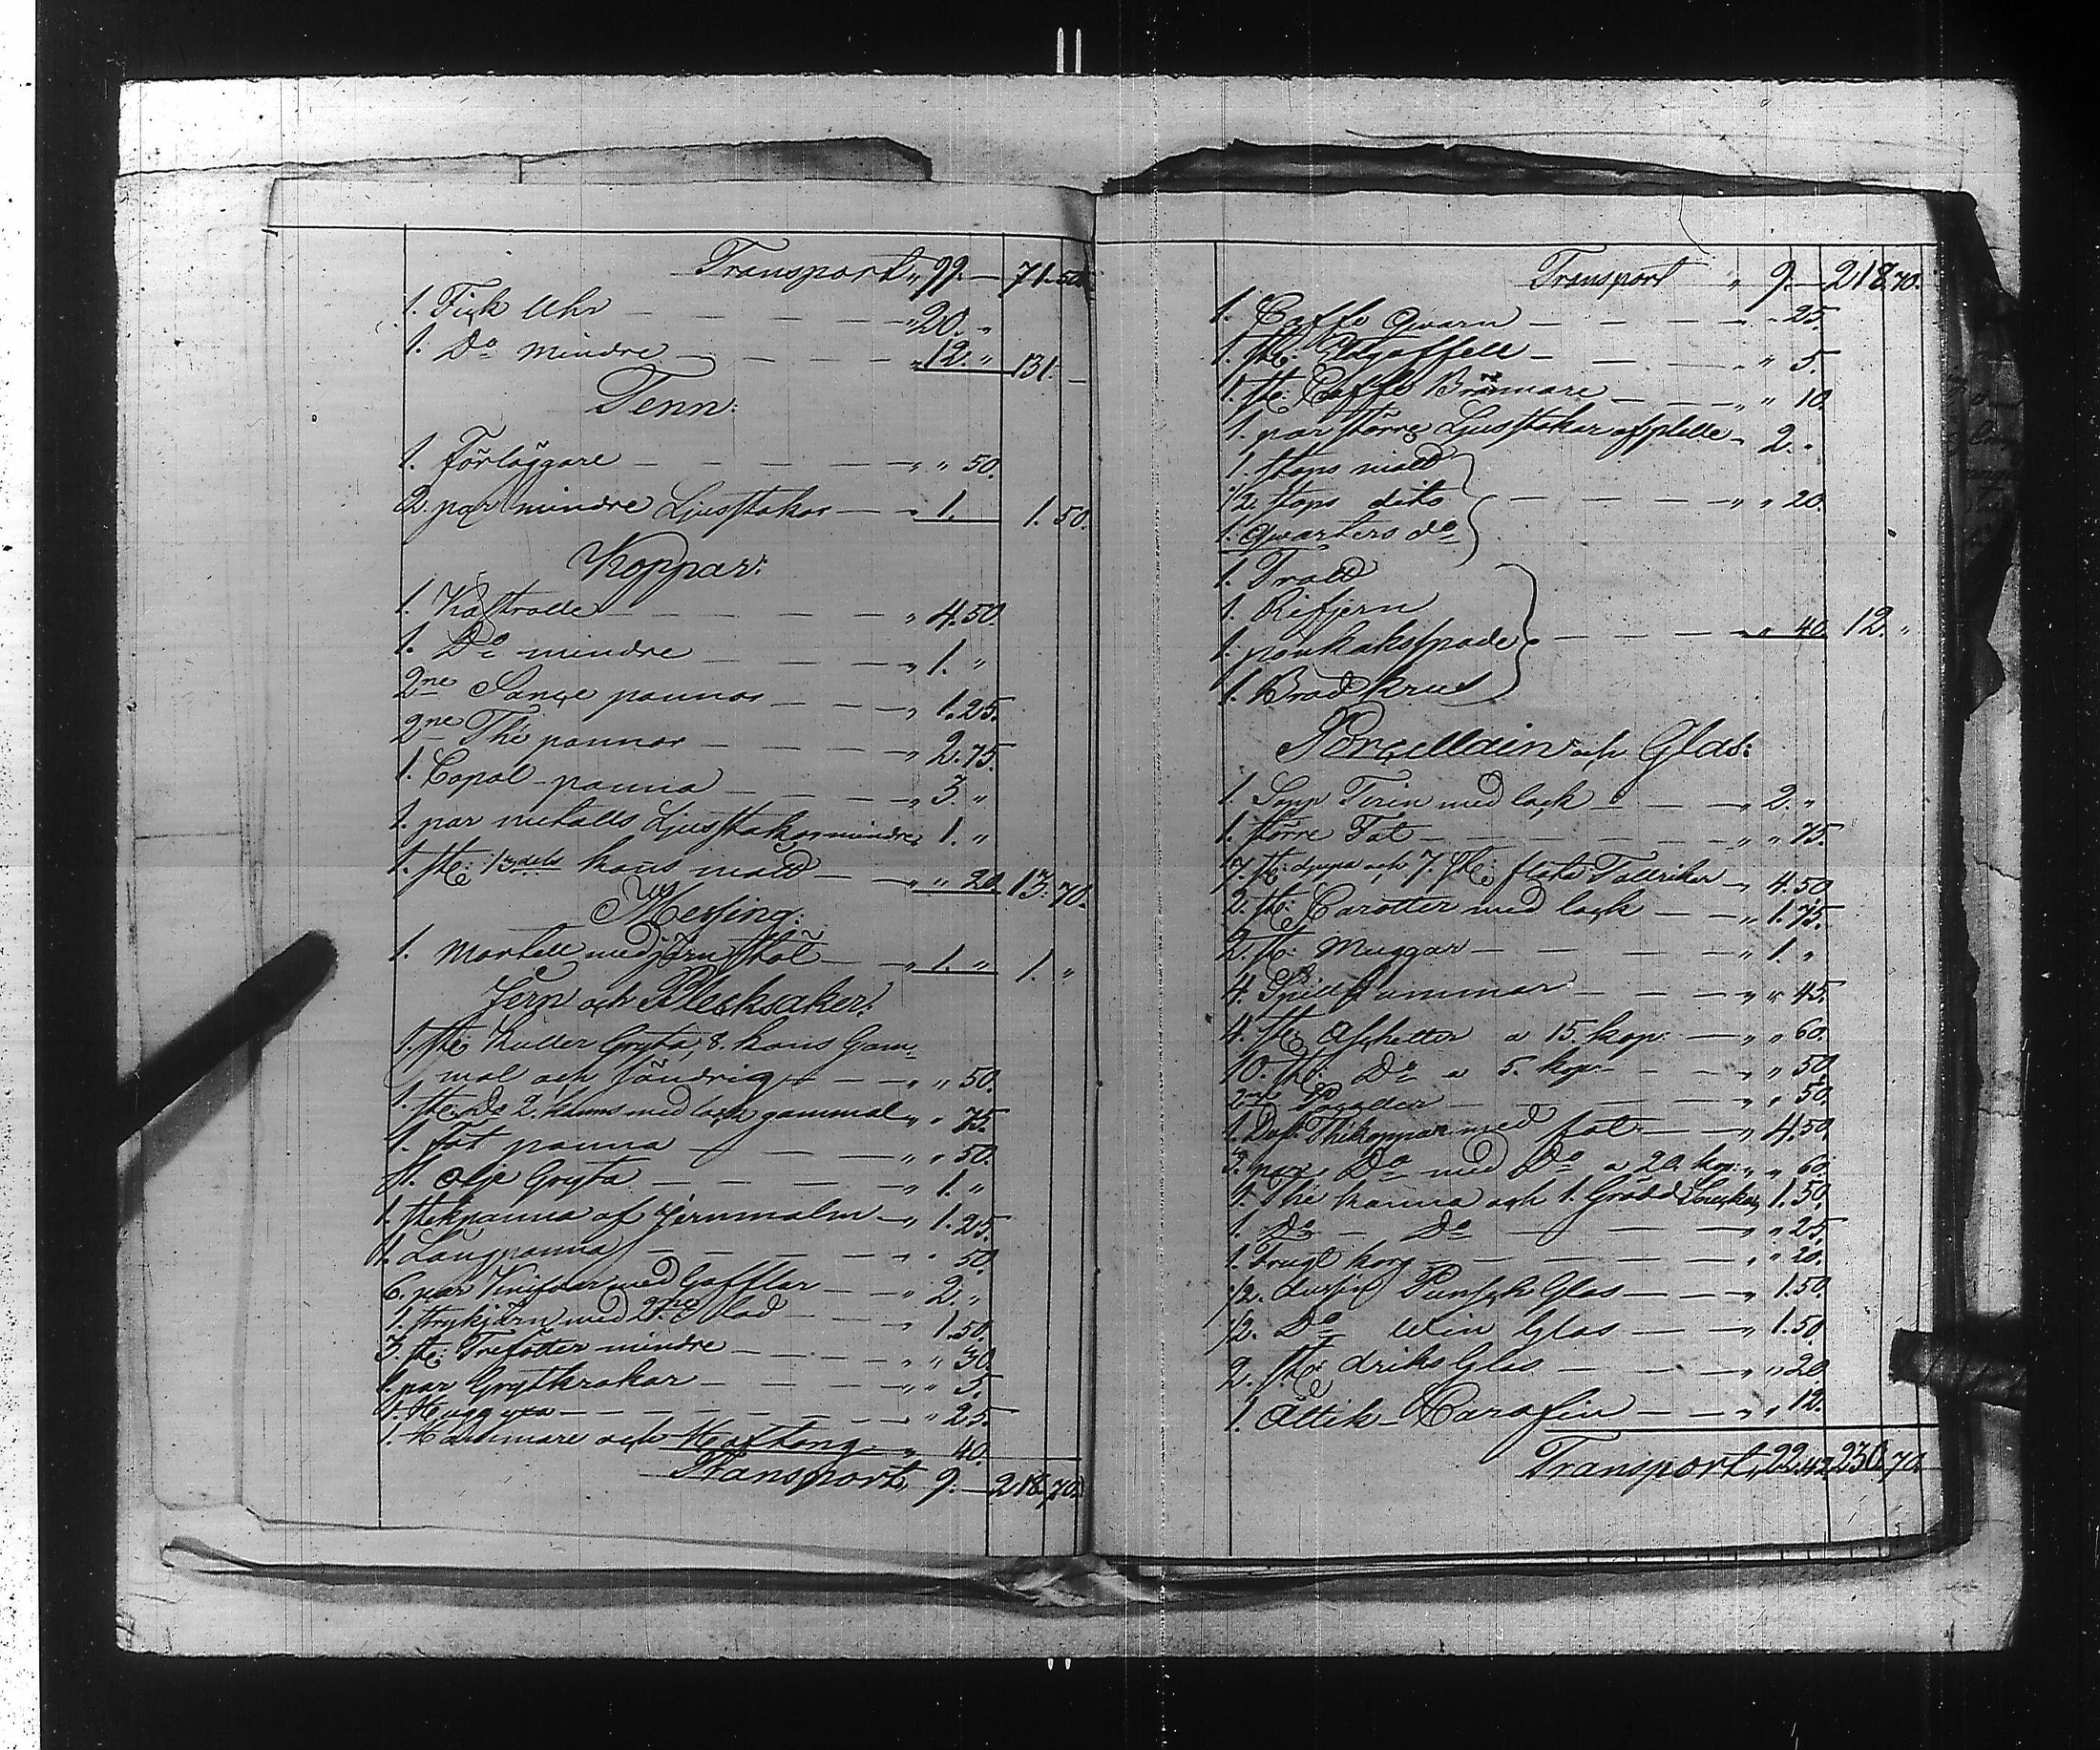 Transport „ 99. — 71. 50.
1. Fick Uhr — — — „ 20. „
1. Do mindre — — — „ 12. „ 131. —
Tenn:
1. Förläggare — — — „ „ 50.
2. par mindre Ljusstakar — „ 1. 1. 50.
Koppar:
1. Kastrolle — — — „ 4. 50.
1. Do mindre — — — „ 1. „
2ne pannor — — „ 1. 25.
2ne The pannor — — — „ 2. 75.
1. Copal panna — — — „ 3. „
1. par metalls Ljusstakar mindre „ 1. „
1. st: 13dels kans mått — — „ „ 20. 13. 70.
Messing:
1. Mortell med jern stöt — — „ 1. „ 1. „
Jern och Blecksaker:
1. st: Kittel Gryta, 8. kans Gam-
mal och söndrig — — „ „ 50.
1. st: Do 2. kanns med lock gammal „ „ 75.
1. panna — — — „ „ 50.
1. Olje Gryta — — — „ 1. „
1. stekpanna af Jernmalm — „ 1. 25.
1. Långpanna — — — „ „ 50.
6. par Knifvar med Gafflar — — „ 2. „
1. strykjärn med 2ne Lod — — „ 1. 50.
3. st: Trefötter mindre — — — „ „ 30.
1. par Grytkrokar — — — „ „ 5.
1. Huggyxa — — — „ „ 25.
1. Hammare och Hoftong — „ 40.
Transport „ 9. — 218. 70.
Transport „ 9. — 218. 70.
1. Caffe Qvarn — — — „ 25.
1. st: Eldgaffell — — — „ „ 5.
1. st: Caffe Brännare — — — „ „ 10.
1. par större Ljusstakar af — 2. „
1. stops mått
1/2. stops dito — — — „ „ 20.
1. Qvarters do
1. Tratt
1. Rifjern
1. pankakspade — — — „ „ 40. 12. „
1. Krus
Porcellain och Glas:
1. Sopp Terin med lock — — „ 2. „
1. större Fat — — — „ „ 75.
17. st: djupa och 7. st: flata Tallrikar — „ 4. 50.
2. st: Carotter med lock — — „ 1. 75.
2. st: Muggar — — — „ 1. „
4. Spillkummar — — — „ „ 45.
4. st: Asschetter a 15. kop: — „ „ 60.
10. st: Do a 5. kop: — — „ „ 50.
2ne — — — „ „ 50.
1. Duss: Thekoppar med fat — — „ 4. 50.
3. par Do med Do a 20. kop: „ „ 60.
1. The kanna och 1. Grädd Snecka „ 1. 50.
1. Do — Do — — „ „ 25.
1. Frugt korg — — — „ „ 20.
1/2. dussin Punsch Glas — — „ 1. 50.
1/2. Do Win Glas — — „ 1. 50.
2. st: driks Glas — — — „ „ 20.
1. Ättik Carafin — — „ „ 12.
Transport „ 22. 42. 230. 70.